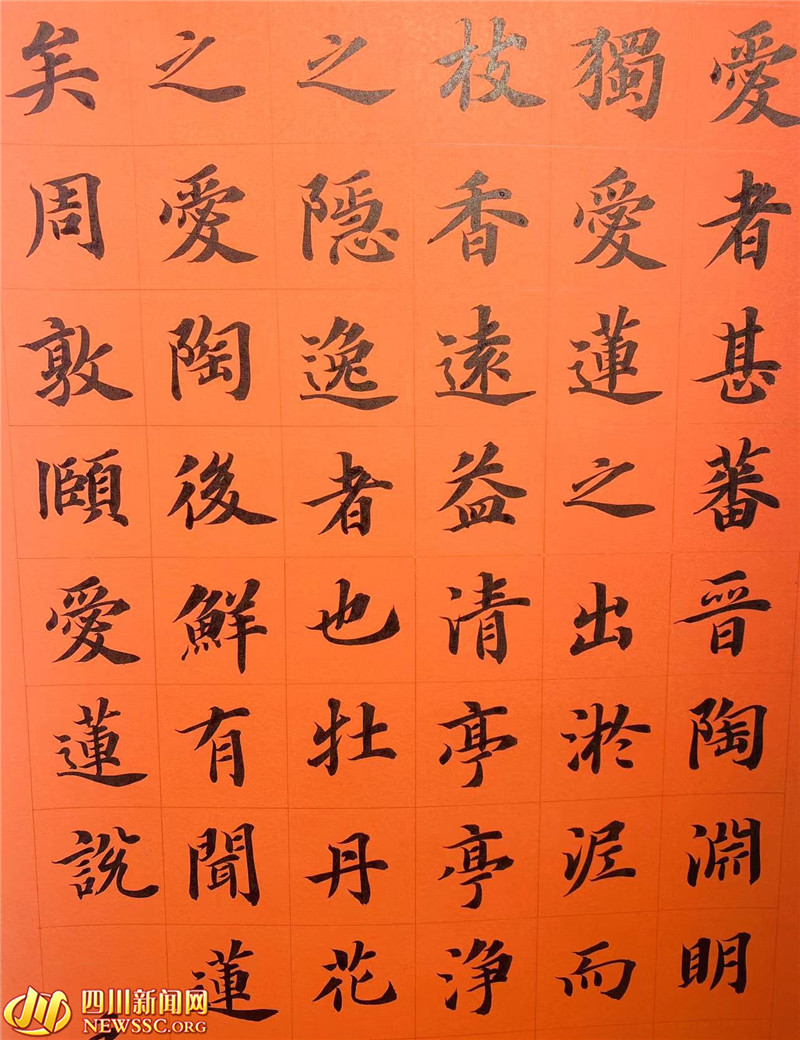 愛者甚蕃晋陶淵明
獨愛蓮之出淤泥而
枝香遠益清亭亭淨
之隱逸者也牡丹花
之愛陶後鮮有聞蓮
矣周敦頤愛蓮說
四川新闻网
NEWSSC.ORG